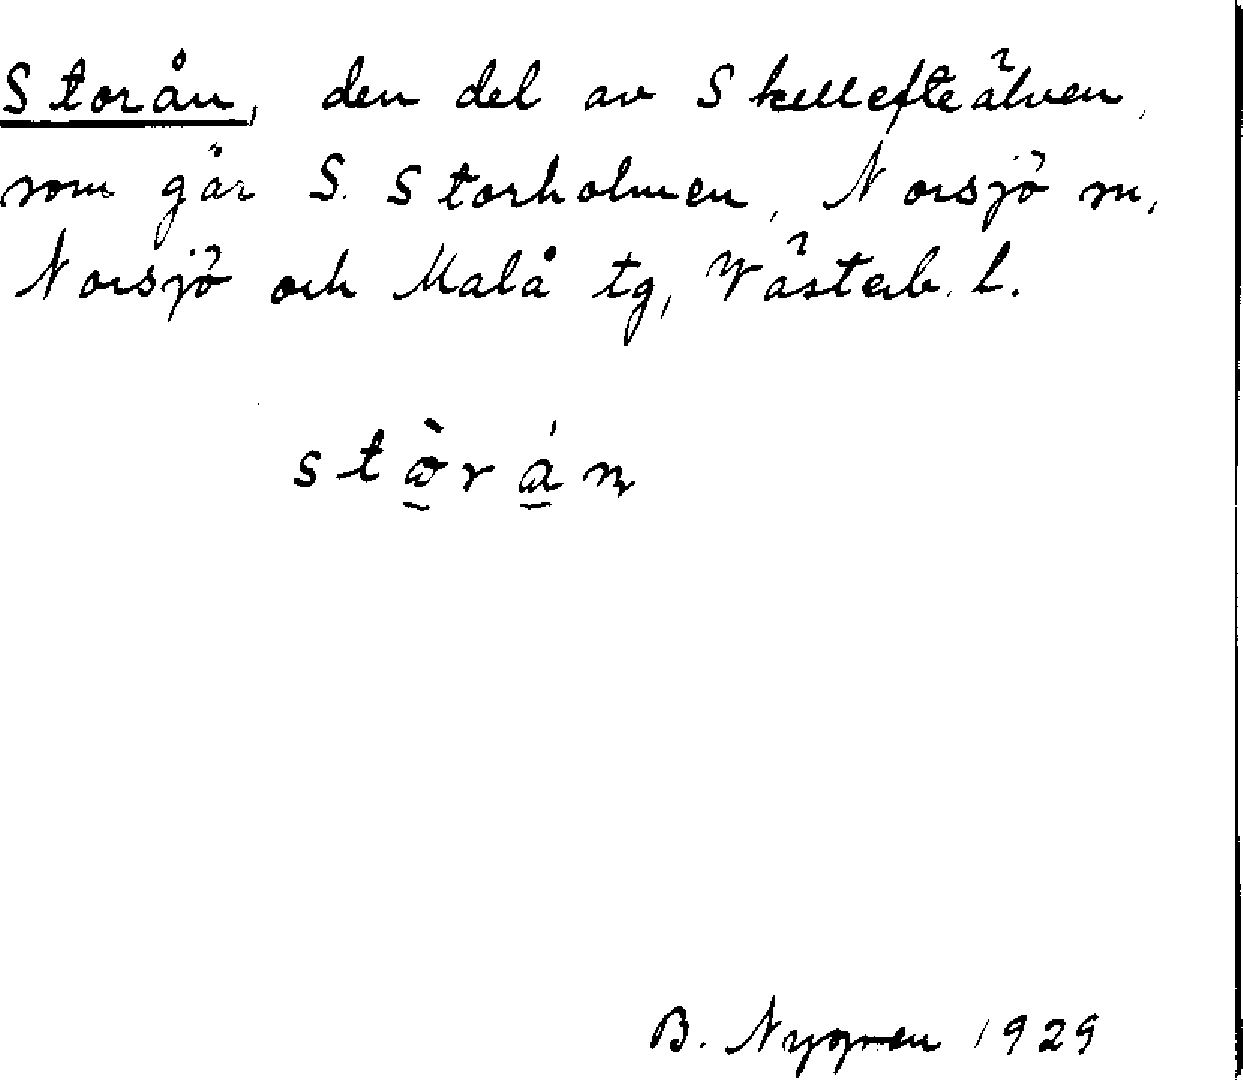 Storån, den del av Skellefteälven,
som går S. Storholmen, Norsjö sn,
Norsjö och Malå tg, Västerb. l.
B. Nygren 1929